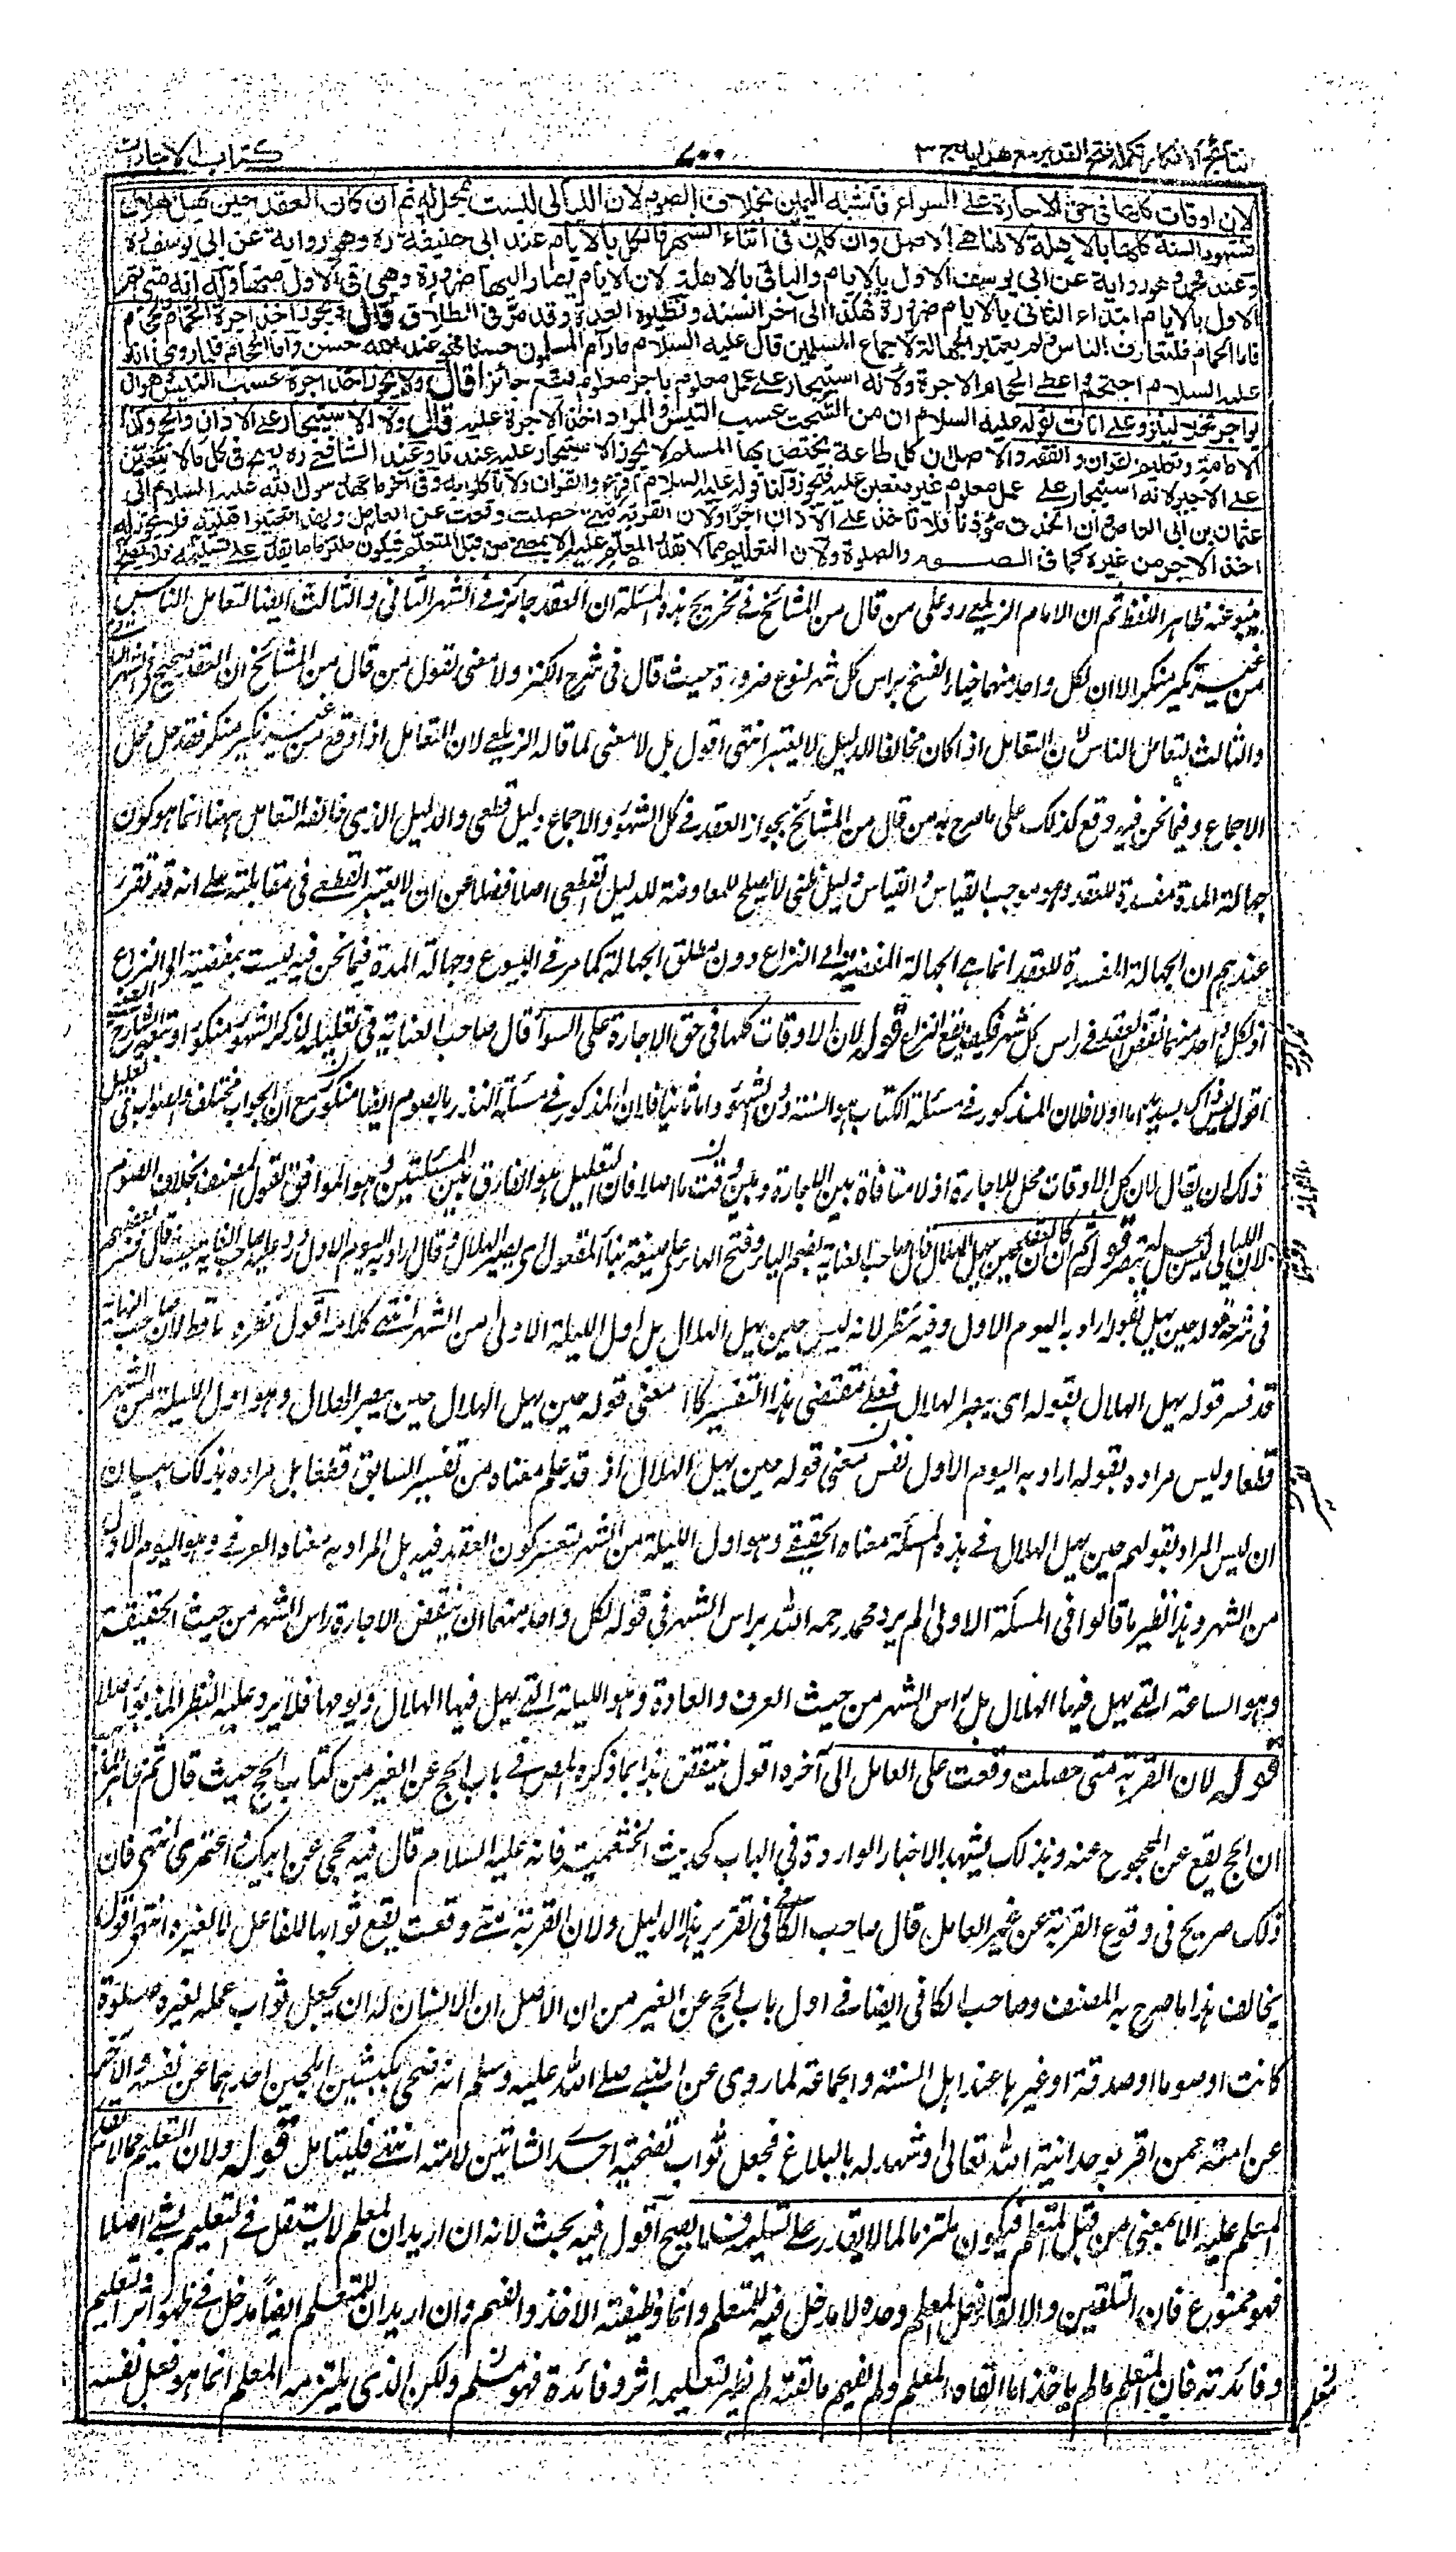 نتائج الافكار تكملة فتح القدير مع هداية ج ٣
٧٠٠
كتاب الاجارات
لان اوقات كلها فى حق الاجارة على السواء فاشبه اليمين بخلاف الصوم لان الليالى ليست بمحل له ثم ان كان العقد حين يهل الهلال
فشهور السنة كلها بالاهلة لانها هى الاصل وان كان فى اثناء الشهر فالكل بالايام عند ابى حنيفة ره وهو رواية عن ابى يوسف ره
وعند محمد وهو رواية عن ابى يوسف الاول بالايام والباقى بالاهلة لان الايام يصار اليها ضرورة وهى فى الاول منها وله انه متى تم
الاول بالايام ابتداء الثانى بالايام ضرورة هكذا الى اخر السنة ونظيره العدة وقد مر فى الطلاق قال ويجوز اخذ اجرة الحمام والحجام
فاما الحمام فلتعارف الناس ولم يعتبر الجهالة لاجماع المسلمين قال عليه السلام ما رآه المسلمون حسنا فهو عند الله حسن واما الحجام فلما روى انه
عليه السلام احتجم واعطى الحجام الاجرة ولانه استيجار على عمل معلوم باجر معلوم فيقع جائزا قال ولا يجوز اخذ اجرة عسب التيس وهو ان
يواجر فحلا لينزو على اناث لقوله عليه السلام ان من السحت عسب التيس والمراد اخذ الاجرة عليه قال ولا الاستيجار على الاذان والحج وكذا
الامامة وتعليم القران والفقه والاصل ان كل طاعة يختص بها المسلم لا يجوز الاستيجار عليه عندنا وعند الشافعى ره يصح فى كل ما لا يتعين
على الاجير لانه استيجار على عمل معلوم غير متعين عليه فيجوز ولنا قوله عليه السلام اقرءوا القران ولا تاكلوا به وفى آخر ما عهد رسول الله عليه السلام الى
عثمان بن ابى العاص وان اتخذت مؤذنا فلا تاخذ على الاذان اجرا ولان القربة متى حصلت وقعت عن العامل ولهذا تعتبر اهليته فلا يجوز له
اخذ الاجر من غيره كما فى الصوم والصلوة ولان التعليم مما لا يقدر المعلم عليه الا بمعنى من قبل المتعلم فيكون ملتزما ما لا يقدر على تسليمه فلا يصح
ينبو عنه ظاهر اللفظ ثم ان الامام الزيلعى رد على من قال من المشائخ فى تخريج هذه المسئلة ان العقد جائز فى الشهر الثانى والثالث ايضا لتعامل الناس
من غير نكير منكر الا ان لكل واحد منهما خيار الفسخ براس كل شهر لنوع ضرورة حيث قال فى شرح الكنز ولا معنى لقول من قال من المشائخ ان العقد صحيح فى الشهر الثانى
والثالث لتعامل الناس لان التعامل اذا كان مخالفا للدليل لا يعتبر انتهى اقول بل لا معنى لما قاله الزيلعى لان التعامل اذا وقع من غير نكير منكر فقد حل محل
الاجماع وفيما نحن فيه وقع كذلك على ما صرح به من قال من المشائخ بجواز العقد فى كل الشهور والاجماع دليل قطعى والدليل الذى خالفه التعامل ههنا انما هو كون
جهالة المدة مفسدة للعقد وهو موجب القياس والقياس دليل ظنى لا يصلح للمعارضة للدليل القطعى اصلا فضلا عن ان لا يعتبر القطعى فى مقابلته على انه قد تقرر
عندهم ان الجهالة المفسدة للعقد انما هى الجهالة المفضية الى النزاع دون مطلق الجهالة كما مر فى البيوع وجهالة المدة فيما نحن فيه ليست بمفضية الى النزاع
اذ لكل واحد منهما نقض العقد فى راس كل شهر فكيف يقع النزاع قوله لان الاوقات كلها فى حق الاجارة على السواء قال صاحب العناية فى تعليله لذكر الشهور منكورا وتبعه الشارح العينى
اقول ليس ذاك بسديد اما اولا فلان المذكور فى مسئلة الكتاب هو السنة دون الشهور واما ثانيا فلان المذكور فى مسئلة النذر بالصوم ايضا منكور مع ان الجواب مختلف والصواب فى تعليل
ذلك ان يقال لان كل الاوقات محل للاجارة اذ لا منافاة بين الاجارة وبين وقت ما اصلا فان التعليل هو الفارق بين المسئلتين وهو الموافق لقول المصنف بخلاف الصوم
لان الليالى ليس بمحل له تبصر قوله ثم ان كان العقد حين يهل الهلال قال صاحب العناية بضم الياء وفتح الهاء على صيغة بناء المفعول اى يبصر الهلال ثم قال اراد به اليوم الاول ورد عليه صاحب الغاية حيث قال فسر بعضهم
فى شرحه قوله حين يهل بقوله اراد به اليوم الاول وفيه نظر لانه ليس حين يهل الهلال بل اول الليلة الاولى من الشهر انتهى كلامه اقول نظره ساقط لان صاحب النهاية
قد فسر قوله يهل الهلال بقوله اى يبصر الهلال فعلى مقتضى هذا التفسير كان معنى قوله حين يهل الهلال حين يبصر الهلال وهو اول الليلة من الشهر
قطعا وليس مراده بقوله اراد به اليوم الاول نفس معنى قوله حين يهل الهلال اذ قد علم معناه من تفسير السابق قطعا بل مراده بذلك بيان
ان ليس المراد بقولهم حين يهل الهلال فى هذه المسئلة معناه الحقيقى وهو اول الليلة من الشهر لتعسر كون العقد فيه بل المراد به معناه العرفى وهو اليوم الاول
من الشهر وهذا نظير ما قالوا فى المسئلة الاولى لم يرد محمد رحمه الله براس الشهر فى قوله لكل واحد منهما ان ينقض الاجارة راس الشهر من حيث الحقيقة
وهو الساعة التى يهل فيها الهلال بل راس الشهر من حيث العرف والعادة وهو الليلة التى يهل فيها الهلال ويومها فلا يرد عليه النظر المذبور اصلا
قوله لان القربة متى حصلت وقعت على العامل الى آخره اقول ينتقض هذا بما ذكره المص فى باب الحج عن الغير من كتاب الحج حيث قال ثم ظاهر المذهب
ان الحج يقع عن المحجوج عنه وبذلك يشهد الاخبار الواردة فى الباب كحديث الخثعمية فانه عليه السلام قال فيه حجى عن ابيك واعتمرى انتهى فان
ذلك صريح فى وقوع القربة عن غير العامل قال صاحب الكافى فى تقرير هذا الدليل ولان القربة متى وقعت يقع ثوابها للفاعل لا لغيره انتهى اقول
يخالف هذا ما صرح به المصنف وصاحب الكافى ايضا فى اول باب الحج عن الغير من ان الاصل ان الانسان له ان يجعل ثواب عمله لغيره صلوة
كانت او صوما او صدقة او غيرها عند اهل السنة والجماعة لما روى عن النبى صلى الله عليه وسلم انه ضحى بكبشين املحين احدهما عن نفسه والآخر
عن امته ممن اقر بوحدانية الله تعالى وشهد له بالبلاغ فجعل ثواب تضحية احدى الشاتين لامته انتهى فليتامل قوله ولان التعليم مما لا يقدر
المعلم عليه الا بمعنى من قبل المتعلم فيكون ملتزما لما لا يقدر على تسليمه فلا يصح اقول فيه بحث لانه ان اريد ان المعلم لا يستقل فى التعليم بشئ اصلا
فهو ممنوع فان التلقين والالقاء فعل المعلم وحده لا مدخل فيه للمتعلم وانما وظيفته الاخذ والفهم وان اريد ان للمتعلم ايضا مدخل فى ظهور اثر التعليم
وفائدته فان المتعلم ما لم ياخذ ما القاه المعلم ولم يفهم ما لقنه لم يظهر لتعليمه اثر وفائدة فهو مسلم ولكن الذى يلتزمه المعلم انما هو فعل نفسه